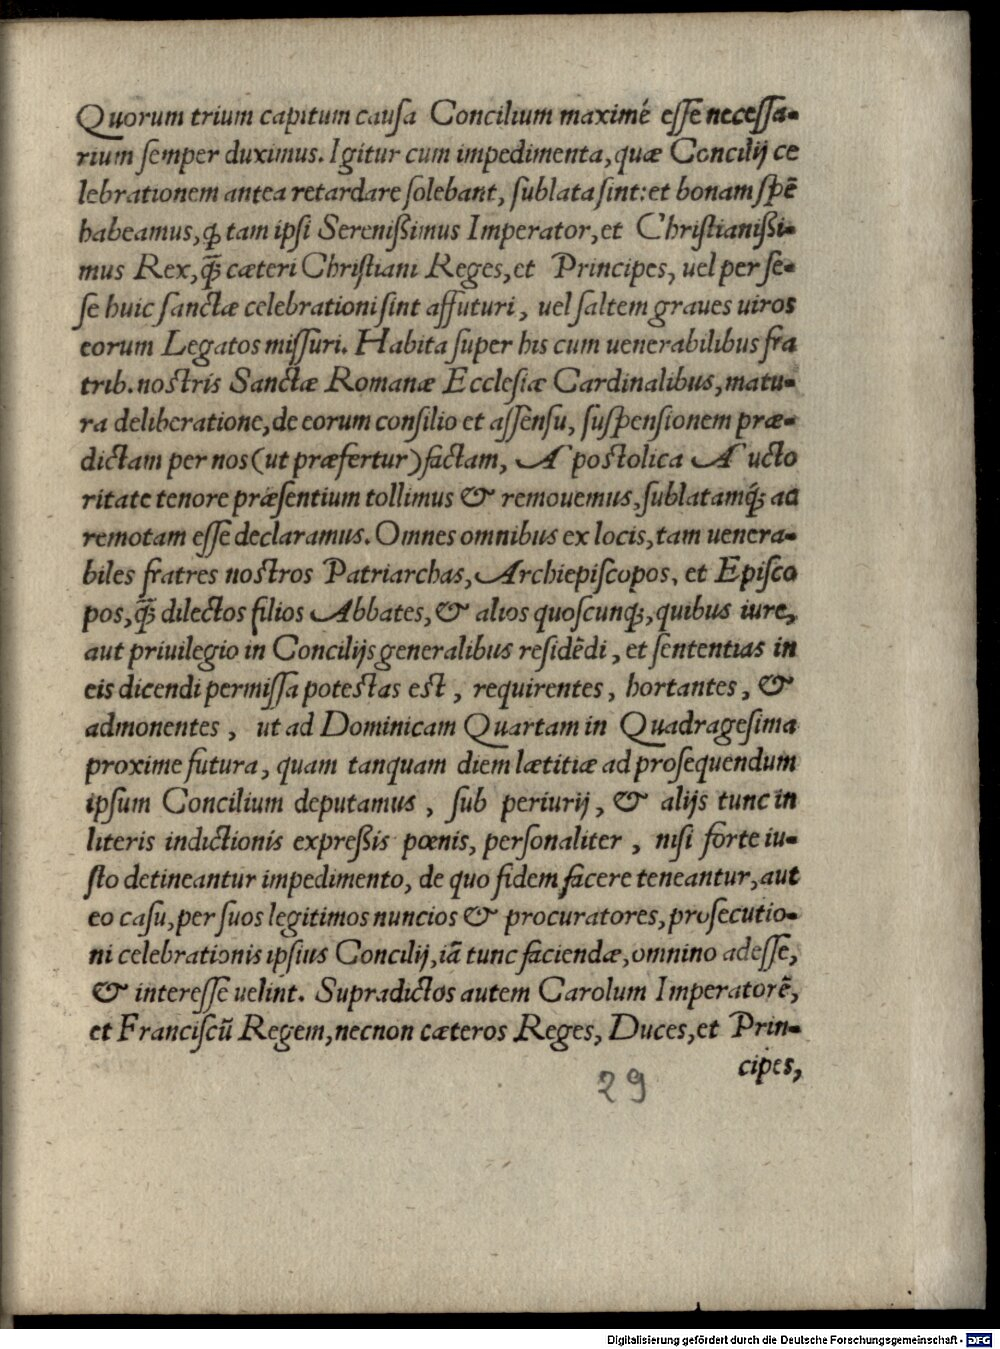 Quorum trium capitum cauſa Concilium maximé eſſe neceſſa-
rium ſemper duximus. Igitur cum impedimenta, quæ Concilij ce
lebrationem antea retardare ſolebant, ſublata ſint: et bonam ſpē
habeamus, ꝙ tam ipſi Sereniſſimus Imperator, et Chriſtianiſſi-
mus Rex, q̃ꝫ cæteri Chriſtiani Reges, et Principes, uel per ſe-
ſe huic ſanctæ celebrationi ſint affuturi, uel ſaltem graues uiros
eorum Legatos miſſuri. Habita ſuper his cum uenerabilibus fra
trib. noſtris Sanctæ Romanæ Eccleſiæ Cardinalibus, matu-
ra deliberatione, de eorum conſilio et aſſenſu, ſuſpenſionem præ-
dictam per nos (ut præfertur) factam, Apoſtolica Aucto
ritate tenore præſentium tollimus & remouemus, ſublatamq́ꝫ ac
remotam eſſe declaramus. Omnes omnibus ex locis, tam uenera-
biles fratres noſtros Patriarchas, Archiepiſcopos, et Epiſco
pos, q̃ꝫ dilectos filios Abbates, & alios quoſcunqꝫ, quibus iure,
aut priuilegio in Concilijs generalibus reſidēdi, et ſententias in
eis dicendi permiſſa poteſtas eſt, requirentes, hortantes, &
admonentes, ut ad Dominicam Quartam in Quadrageſima
proxime futura, quam tanquam diem lætitiæ ad proſequendum
ipſum Concilium deputamus, ſub periurij, & alijs tunc in
literis indictionis expreſſis pœnis, perſonaliter, niſi forte iu-
ſto detineantur impedimento, de quo fidem facere teneantur, aut
eo caſu, per ſuos legitimos nuncios & procuratores, proſecutio-
ni celebrationis ipſius Concilij, iā tunc faciendæ, omnino adeſſe,
& intereſſe uelint. Supradictos autem Carolum Imperatorē,
et Franciſcū Regem, necnon cæteros Reges, Duces, et Prin-
cipes,
29
Digitalisierung gefördert durch die Deutsche Forschungsgemeinschaft - DFG